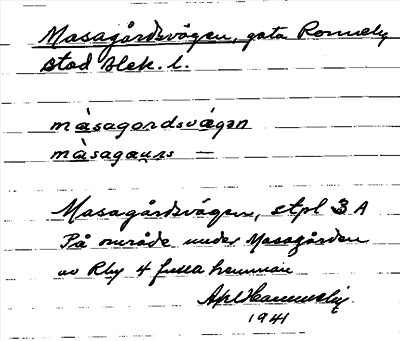 Masagårdsvägen, gata Ronneby
stad Blek. l.
màsagordsvägan
màsagaurs —
Masagårdsvägen, stpl 3 A
På område under Masagården
av Rby 4 fulla hemman
1941